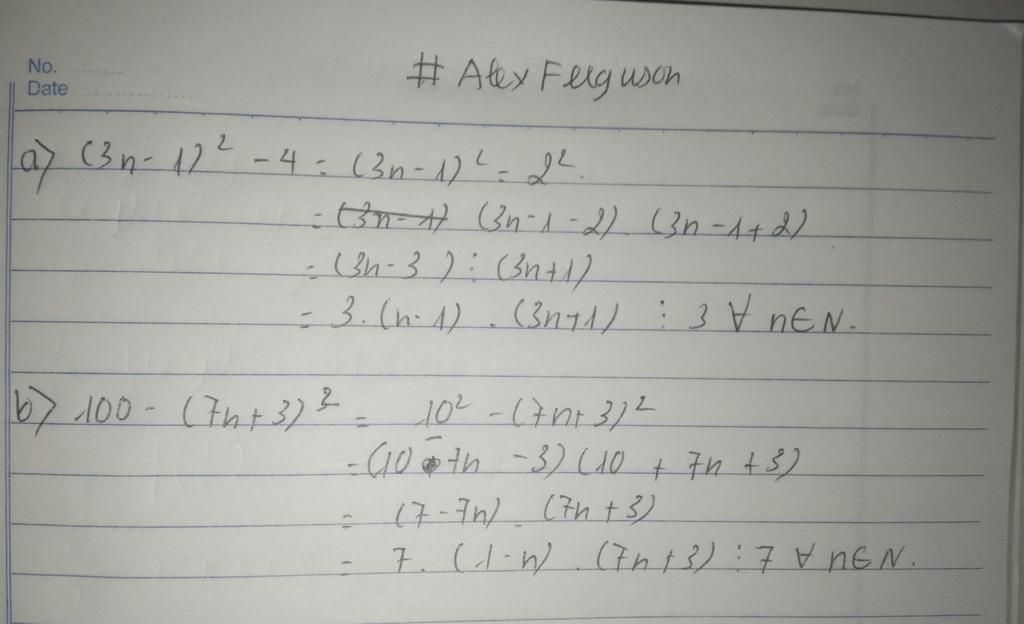 No. ........
# Alex Ferguson
Date ................
a) (3n - 1)² - 4 = (3n - 1)² = 2².
= (3n - 1) (3n - 1 - 2) . (3n - 1 + 2)
= (3n - 3) ⋮ (3n + 1)
= 3. (n - 1) . (3n + 1) ⋮ 3 ∀ n ∈ N.
b) 100 - (7n + 3)² = 10² - (7n + 3)²
= (10 - 7n - 3) (10 + 7n + 3)
= (7 - 7n) . (7n + 3)
= 7. (1 - n) . (7n + 3) ⋮ 7 ∀ n ∈ N.